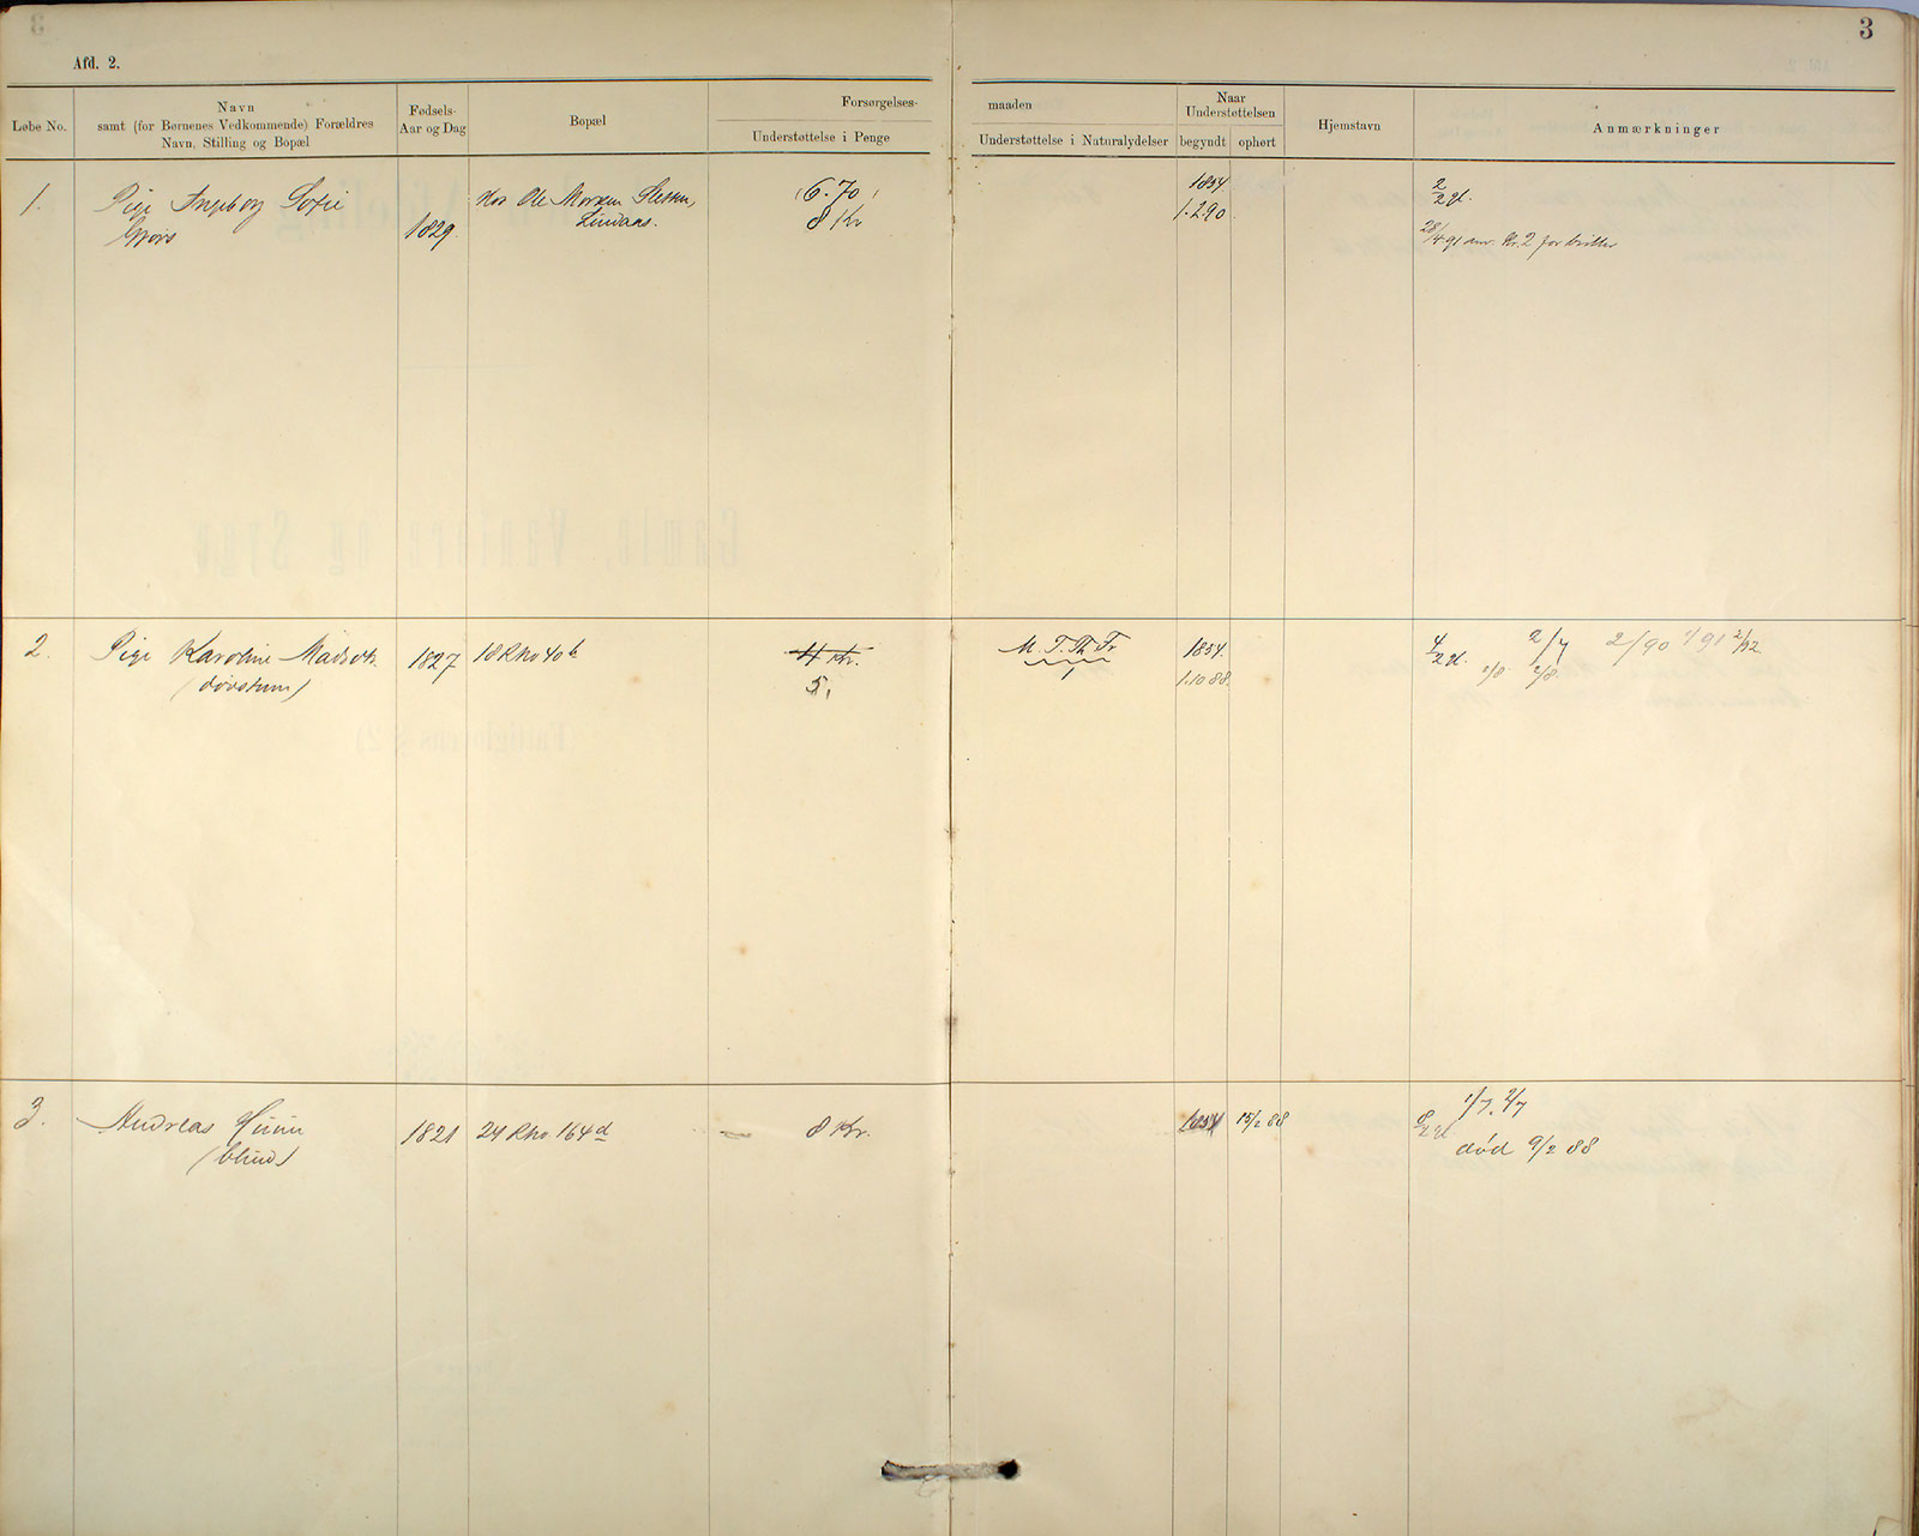 3
Afd. 2.
Løbe No.
Navn
samt (for Børnenes Vedkommende) Forældres
Navn, Stilling og Bopæl
Fødsels-
Aar og Dag
Bopæl
Forsørgelses-
Understøttelse i Penge
maaden
Understøttelse i Naturalydelser
Naar
Understøttelsen
begyndt
ophørt
Hjemstavn
Anmærkninger
1.
Pige Ingeborg Sofie
1829.
hos Ole Morken
Lindaas.
6.70
8 Kr
1854
1.2.90
2/2 gl.
28/4 91 anv. Kr. 2 for briller
2.
Pige Karoline
(døvstum)
1827
18 Rho 40 b
4 Kr.
5,
M. T. Th. Fr
1854.
1.10 88.
4/2 gl. 2/7 2/90 1/91 2/92
2/8 2/8.
3.
Andreas
(blind)
1821
24 Rho 164 d
8 Kr.
1854
15/2 88
1/7. 2/7
8/2 gl
død 9/2 88